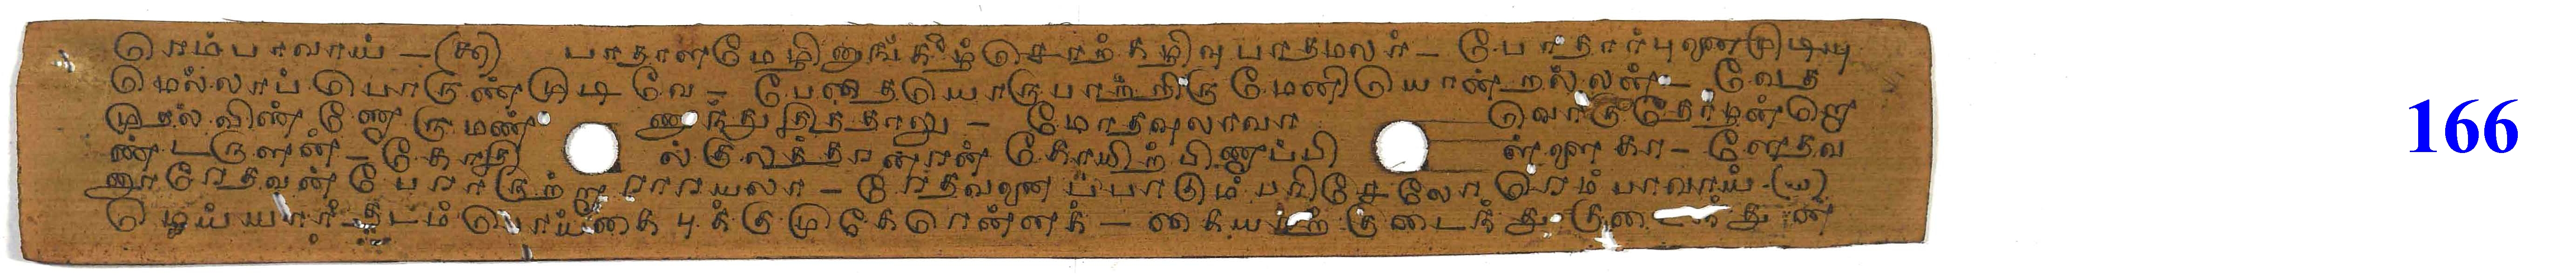 ரெம்பாவாய் – (௯) பாதாளமேழினுங்கீழ்சொற்கழிவுபாதமலர் – போதார்புனைமுடியு
மெல்லாப்பொருண்முடிவே – பேதையொருபாற்றிருமேனியொன்றல்லன் – வேத
முதல்விண்ணோருமண் ணுந்துதித்தாலு – மோதவுலாவா வொருதோழன்றொ
ண்டருளன் – கோதி ல்குலத்தரன்றன்கோயிற்பிணாப்பி ள்ளைகா – ளேதவ
னூரேதவன்பேராருற்றாராரயலா – ரேதவனைப்பாடும்பரிசேலோரெம்பாவாய் – (௰)
மொய்யார்தடம்பொய்கைபுக்குமுகேரென்னக் – கையாற்குடைந்துகுடைந்துன்
166